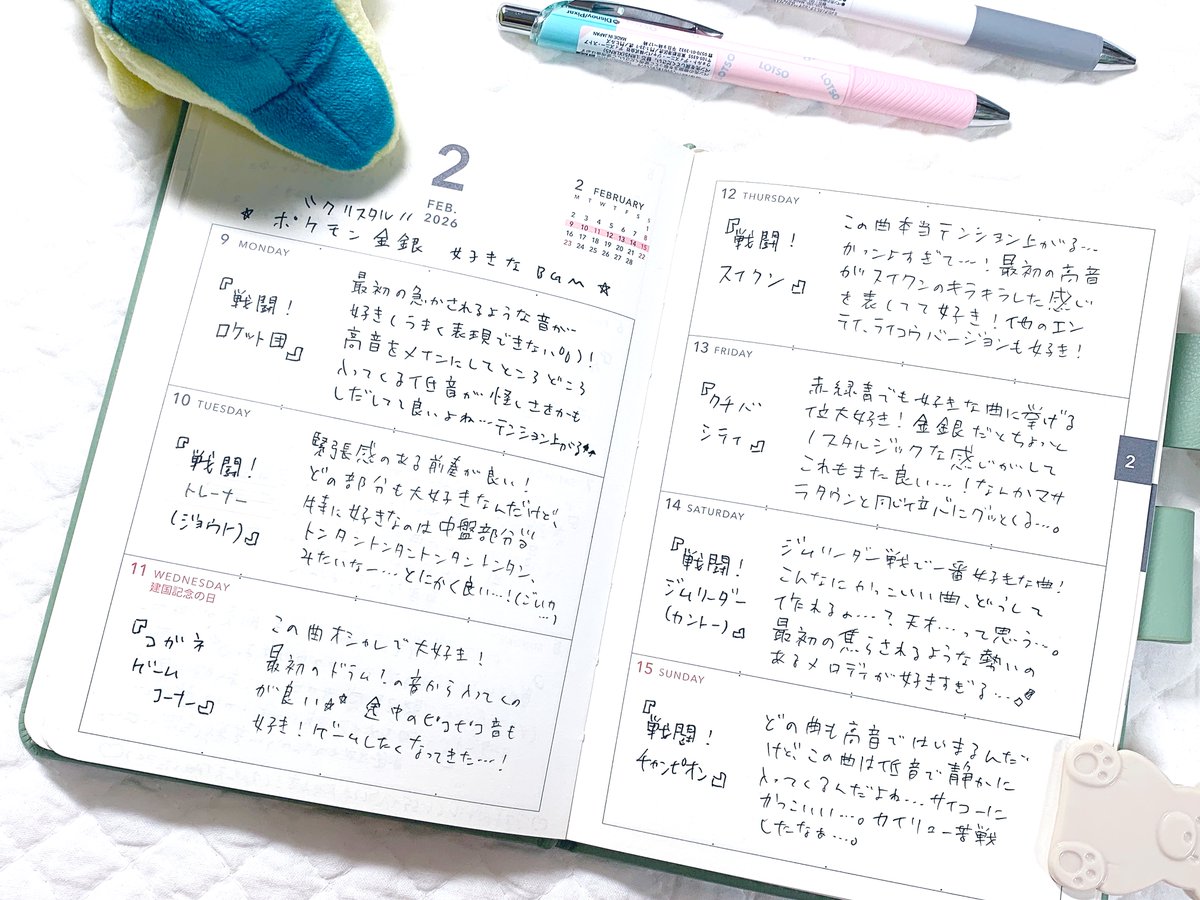 Disney/Pixar
MADE IN JAPAN
LOTSO
LOTSO
LOTSO
2
FEB.
2026
2 FEBRUARY
M T W T F S S
1
2 3 4 5 6 7 8
9 10 11 12 13 14 15
16 17 18 19 20 21 22
23 24 25 26 27 28
"クリスタル"
☆ ポケモン金銀 好きなBGM ☆
9 MONDAY
『戦闘!
ロケット団』
最初の急かされるような音が
好き(うまく表現できない)!
高音をメインにしてところどころ
入ってくる低音が怪しささかも
しだしてて良いよね…テンション上がる
10 TUESDAY
『戦闘!
トレーナー
(ジョウト)』
緊張感のある前奏が良い!
どの部分も大好きなんだけど、
特に好きなのは中盤部分
トンタントンタントンタントンタン、
みたいなー…とにかく良い…!(ごいりょく
…)
11 WEDNESDAY
建国記念の日
『コガネ
ゲーム
コーナー』
この曲オシャレで大好き!
最初のドラム?の音から入ってくの
が良い☆☆ 途中のピコピコ音も
好き!ゲームしたくなってきた…!
12 THURSDAY
『戦闘!
スイクン』
この曲本当テンション上がる…
かっこよすぎて…!最初の高音
がスイクンのキラキラした感じ
を表してて好き!他のエン
テイ、ライコウバージョンも好き!
13 FRIDAY
『クチバ
シティ』
赤緑青でも好きな曲に挙げる
位大好き!金銀だとちょっと
ノスタルジックな感じがして
これもまた良い…!なんかマサ
ラタウンと同じ位心にグッとくる…。
14 SATURDAY
『戦闘!
ジムリーダー
(カントー)』
ジムリーダー戦で一番好きな曲!
こんなにかっこいい曲、どうして
作れるの…?天才…って思う…。
最初の焦らされるような勢いの
あるメロディが好きすぎる…。
15 SUNDAY
『戦闘!
チャンピオン』
どの曲も高音ではじまるんだ
けど、この曲は低音で静かに
入ってくるんだよね…サイコーに
かっこいい…。カイリュー苦戦
したなぁ…。
2